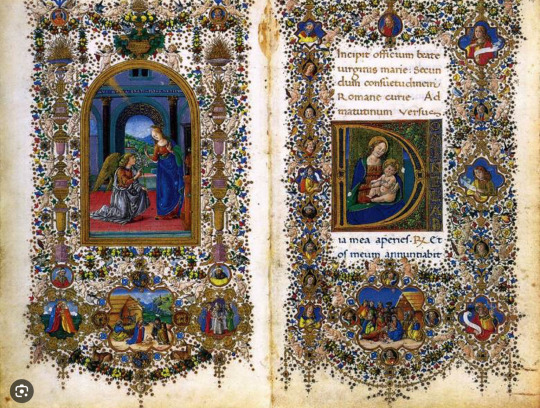 Incipit officium beate
uirginis marie. Secun
dum consuetudinem
Romane curie. Ad
matutinum versus.
D
ia mea aperies. R. Et
os meum annuntiabit